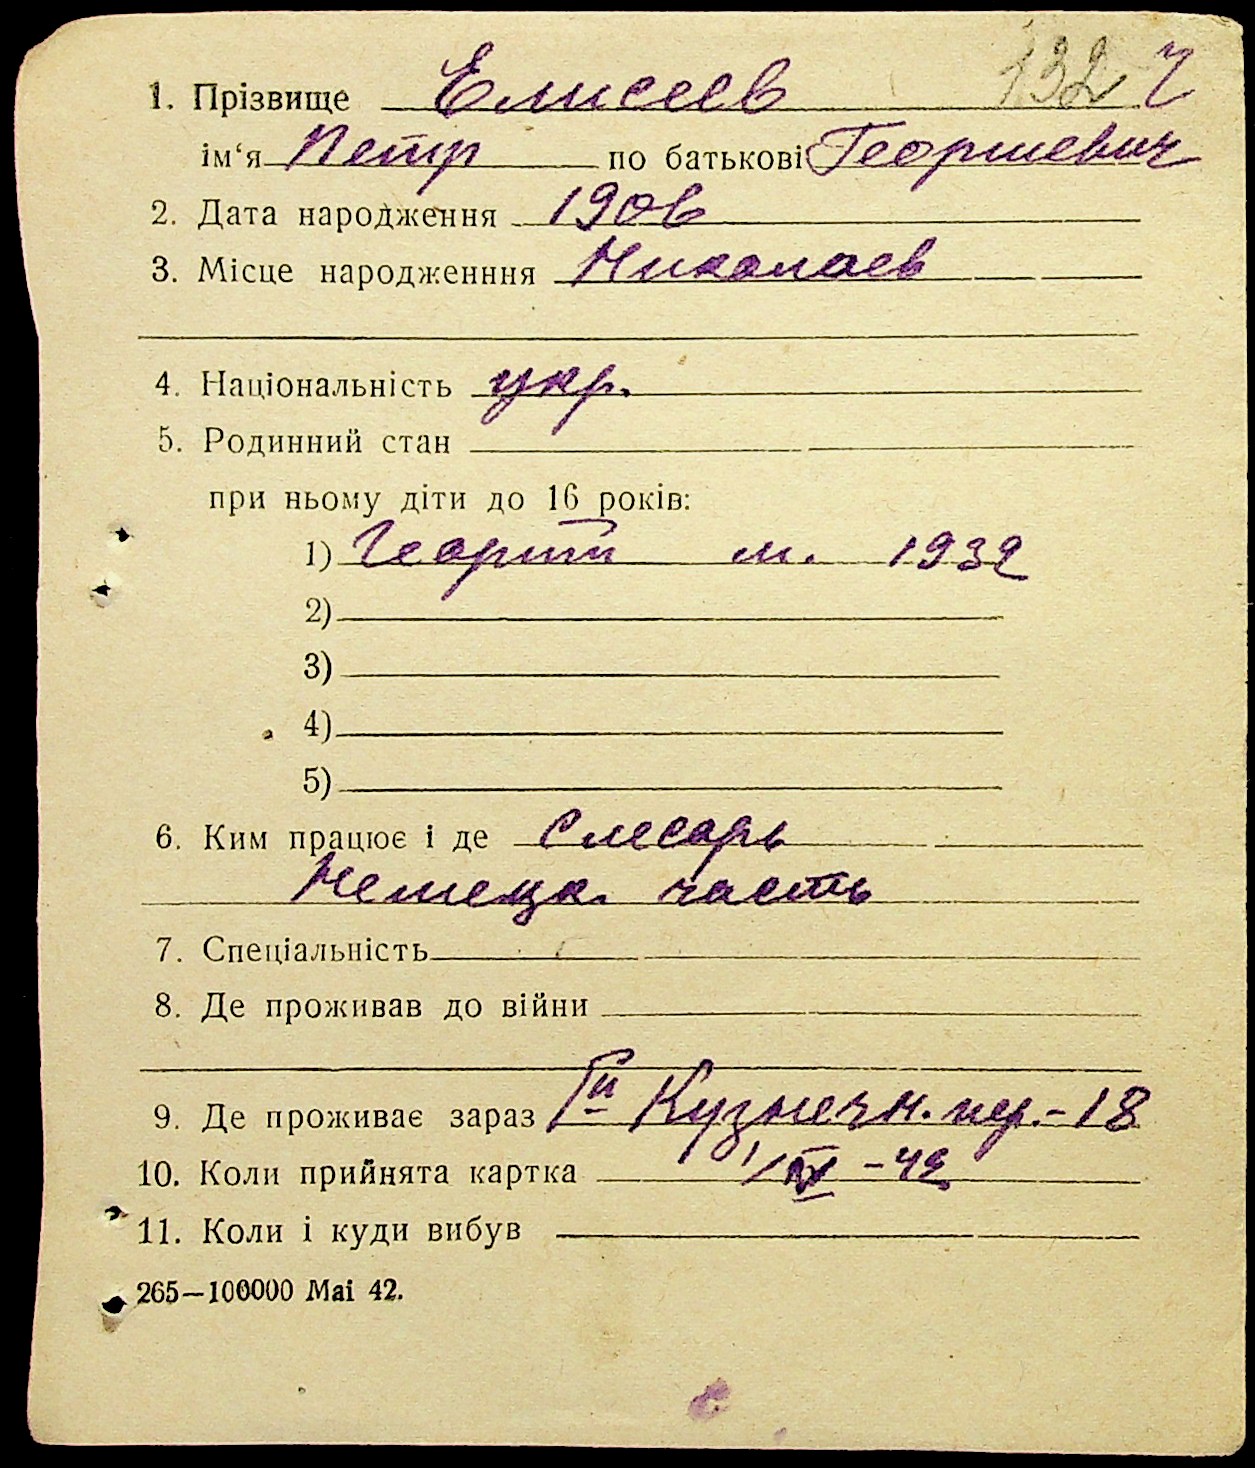 132 ч
1. Прізвище Елисеев
ім‘я Петр по батькові Георгиевич
2. Дата народження 1906
3. Місце народженння Николаев
4. Національність укр.
5. Родинний стан
при ньому діти до 16 років:
1) Георгий м. 1932
2)
3)
4)
5)
6. Ким працює і де Слесарь
Немецк. часть
7. Спеціальність
8. Де проживав до війни
9. Де проживає зараз Iй Кузнечн. пер.-18
10. Коли прийнята картка 1/IX-42
11. Коли і куди вибув
265—100000 Mai 42.